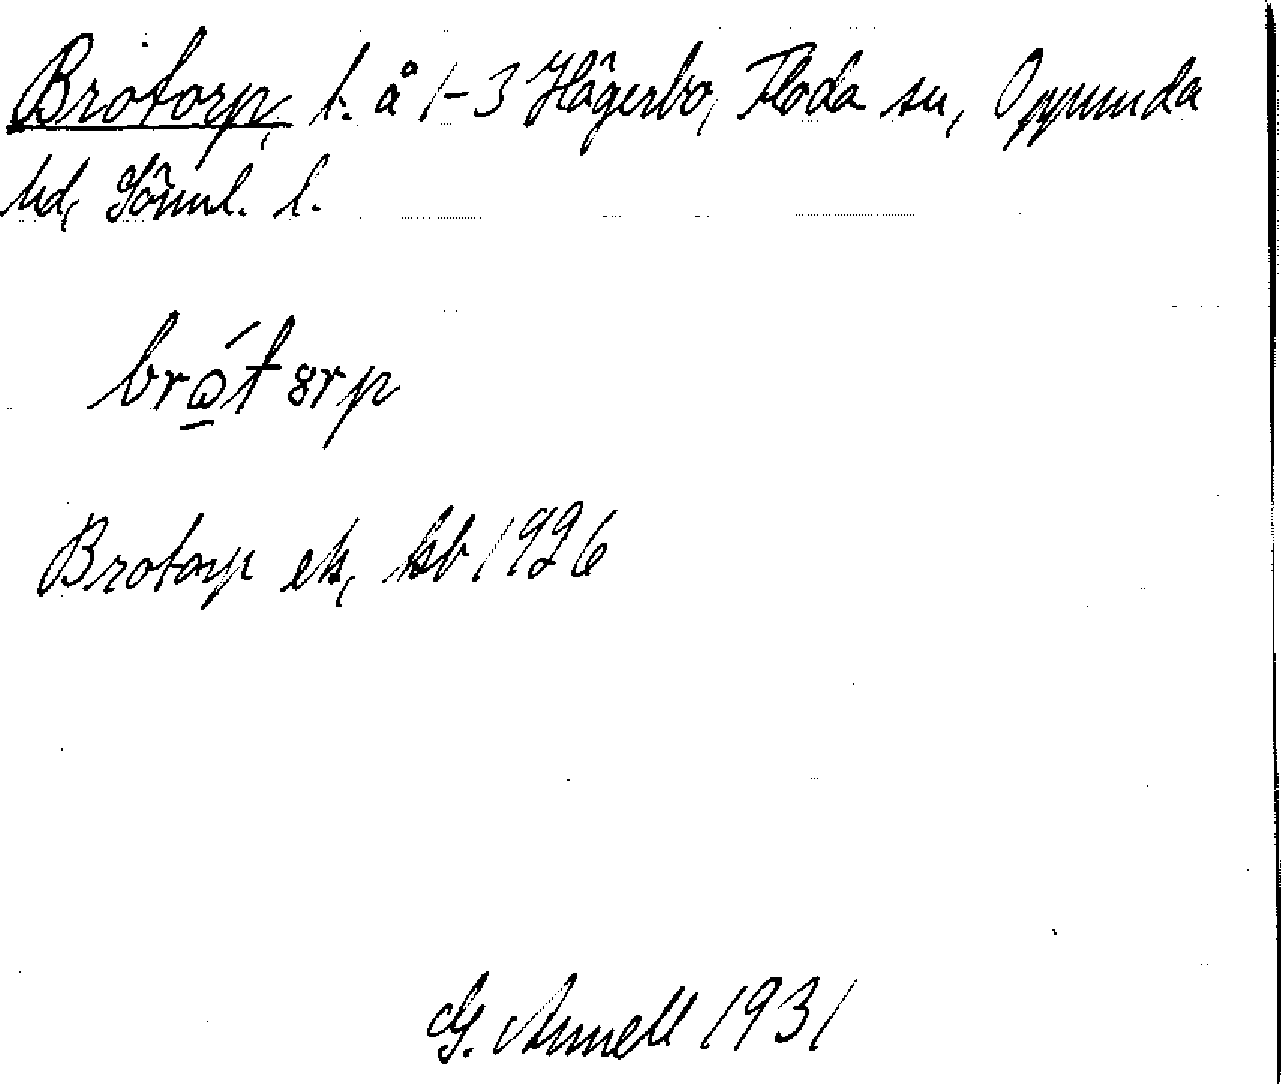 Brotorp, t. å 1-3 Hägerbo, Floda sn, Oppunda
hd, Sörml. l.
brώ̲t 8rp
Brotorp ek, kb 1926
G. Annell 1931